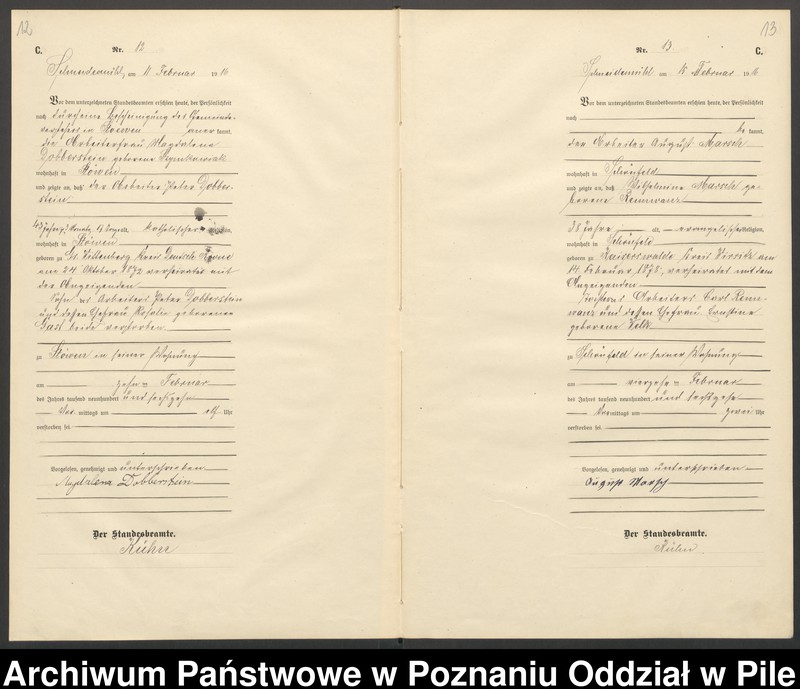 12
C.
Nr. 12
Schneidemühl, am 11 Februar 1916
Vor dem unterzeichneten Standesbeamten erschien heute, der Persönlichkeit
nach durch eine Bescheinigung des Gemeinde-
vorstehers in Stöwen anerkannt,
die Arbeiterfrau Magdalena
Dobberstein geborene
wohnhaft in Stöwen
und zeigte an, daß der Arbeiter Peter Dobber-
stein
43 Jahre, katholischer Religion,
wohnhaft in Stöwen
geboren zu Gr. Wittenberg Kreis Deutsch Krone
am 24 Oktober 1872 verheiratet mit
der Anzeigenden
Sohn des Arbeiters Peter Dobberstein
und dessen Ehefrau Rosalie geborenen
Gast beide verstorben
zu Stöwen in seiner Wohnung
am zehn ten Februar
des Jahres tausend neunhundert und sechzehn
mittags um elf Uhr
verstorben sei
Vorgelesen, genehmigt und unterschrieben
Magdalena Dobberstein
Der Standesbeamte.
13
C.
Nr. 13
Schneidemühl am 15 Februar 1916
Vor dem unterzeichneten Standesbeamten erschien heute, der Persönlichkeit
nach
be kannt,
der Arbeiter August Marsch
wohnhaft in Schönfeld
und zeigte an, daß Wilhelmine Marsch ge-
borene Rennwanz
38 Jahre alt, evangelischer Religion,
wohnhaft in Schönfeld
geboren zu Kaiserswalde Kreis Wirsitz am
14. Februar 1878, verheiratet mit dem
Anzeigenden
Tochter des Arbeiters Carl Renn-
wanz und dessen Ehefrau Ernstine
geborene
zu Schönfeld in seiner Wohnung
am vierzehn ten Februar
des Jahres tausend neunhundert und sechzehn
Vormittags um zwei Uhr
verstorben sei
Vorgelesen, genehmigt und unterschrieben
August Marsch
Der Standesbeamte.
Archiwum Państwowe w Poznaniu Oddział w Pile